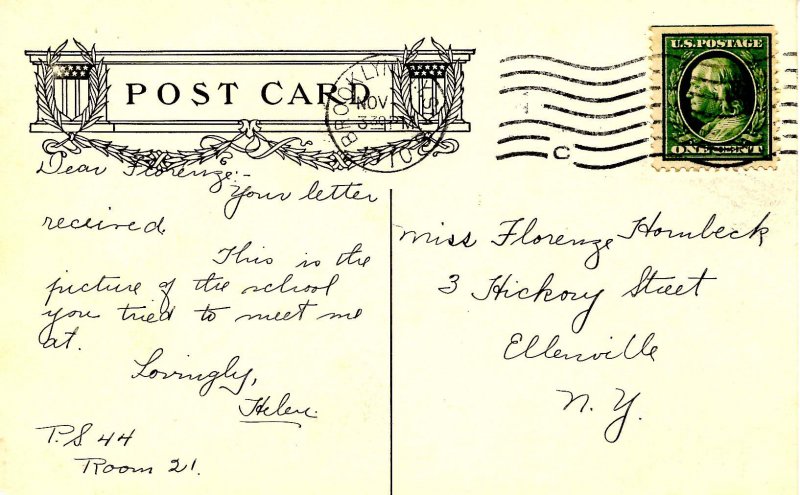 POST CARD
BROOKLYN
NOV
3 30 PM
10
C
U.S. POSTAGE
ONE CENT
Dear Florenze:-
Your letter
received.
This is the
picture of the school
you tried to meet me
at.
Lovingly,
Helen.
P.S 44
Room 21.
Miss Florenze Hornbeck
3 Hickory Street
Ellenville
N.Y.